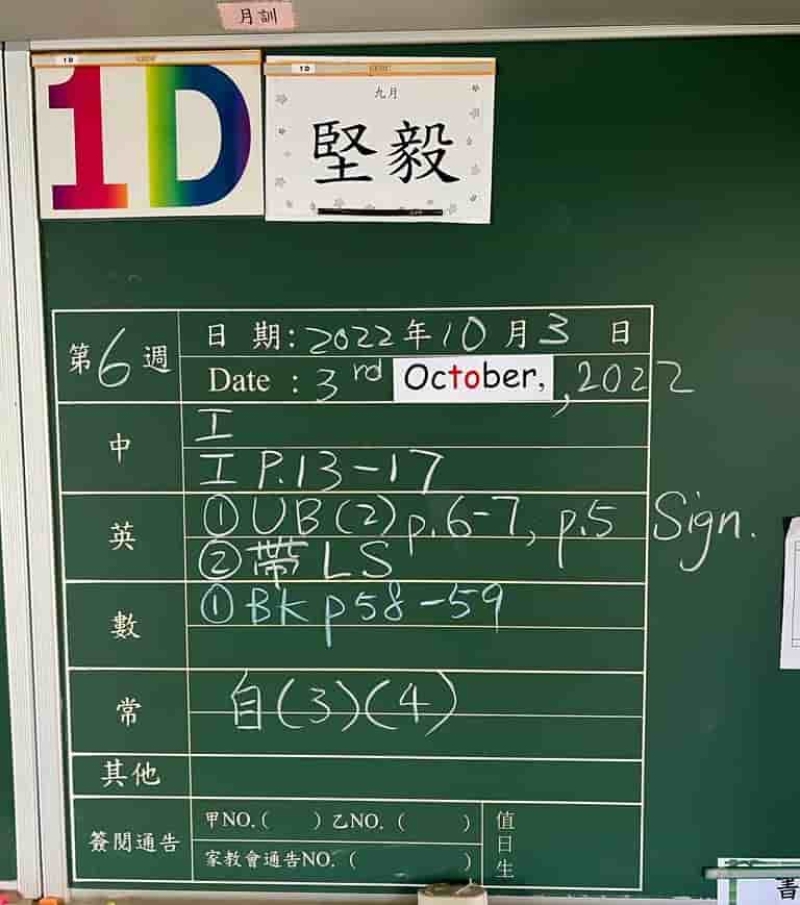 月訓
1D
1D
九月
堅毅
第6週
日 期:2022年10月3日
Date : 3rd October, ,2022
中
工
工 P.13-17
英
①UB(2)p.6-7, p.5 Sign.
②帶LS
數
①BK p58-59
常
自(3)(4)
其他
簽閱通告
甲NO.( ) 乙NO.( )
家教會通告NO.( )
值日生
書